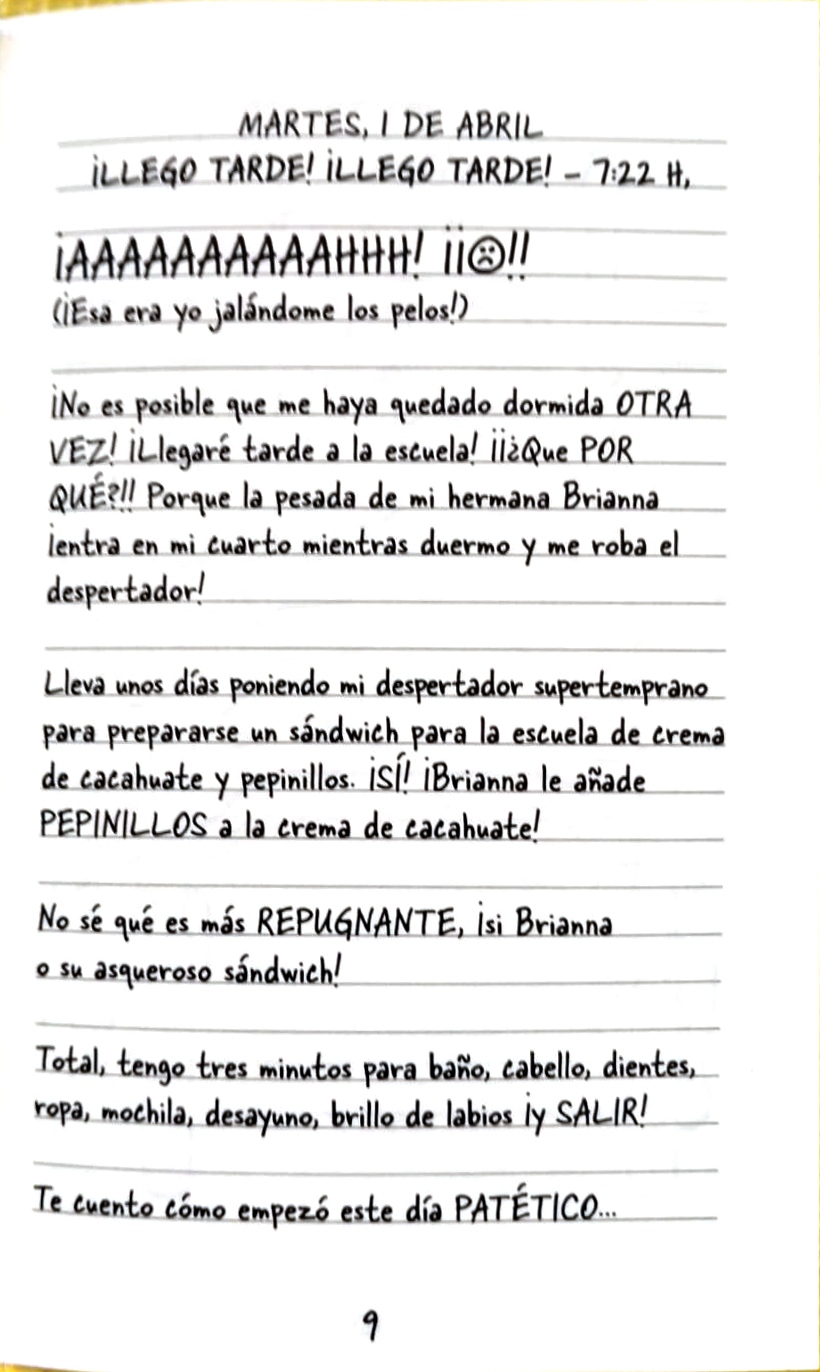 MARTES, 1 DE ABRIL
¡LLEGO TARDE! ¡LLEGO TARDE! – 7:22 H,
¡AAAAAAAAAAAHHH! ¡¡☹!!
(¡Esa era yo jalándome los pelos!)
¡No es posible que me haya quedado dormida OTRA
VEZ! ¡Llegaré tarde a la escuela! ¡¡¿Que POR
QUÉ?!! Porque la pesada de mi hermana Brianna
¡entra en mi cuarto mientras duermo y me roba el
despertador!
Lleva unos días poniendo mi despertador supertemprano
para prepararse un sándwich para la escuela de crema
de cacahuate y pepinillos. ¡SÍ! ¡Brianna le añade
PEPINILLOS a la crema de cacahuate!
No sé qué es más REPUGNANTE, ¡si Brianna
o su asqueroso sándwich!
Total, tengo tres minutos para baño, cabello, dientes,
ropa, mochila, desayuno, brillo de labios ¡y SALIR!
Te cuento cómo empezó este día PATÉTICO...
9